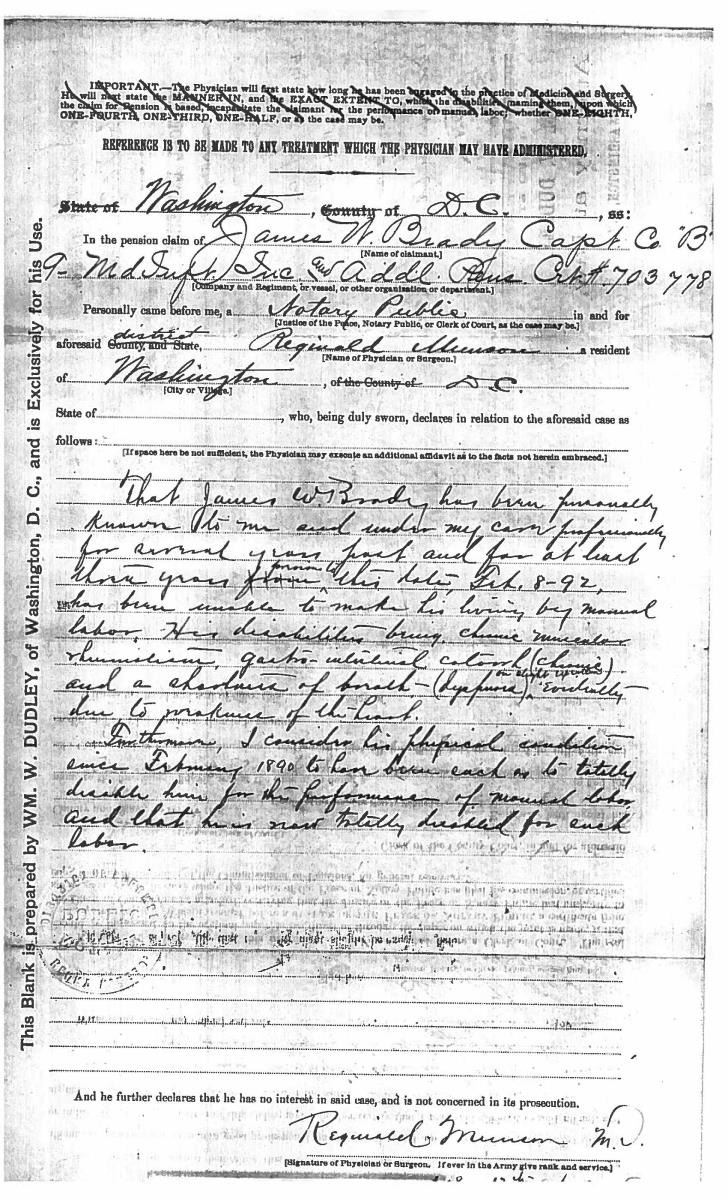 IMPORTANT.—The Physician will first state how long he has been engaged in the practice of Medicine and Surgery.
He will next state the MANNER IN, and the EXACT EXTENT TO, which the disabilities, naming them, upon which
the claim for Pension is based, incapacitate the claimant for the performance of manual labor, whether ONE-EIGHTH,
ONE-FOURTH, ONE-THIRD, ONE-HALF, or as the case may be.
REFERENCE IS TO BE MADE TO ANY TREATMENT WHICH THE PHYSICIAN MAY HAVE ADMINISTERED.
State of Washington, County of D.C., ss:
In the pension claim of James W. Brady Capt Co "B"
[Name of claimant.]
9- Md Inft. Inc. and Addl. Pens. Crt# 703778
[Company and Regiment, or vessel, or other organization or department.]
Personally came before me, a Notary Public in and for
[Justice of the Peace, Notary Public, or Clerk of Court, as the case may be.]
district
aforesaid County, and State, Reginald Munson a resident
[Name of Physician or Surgeon.]
of Washington, of the County of D.C.
[City or Village.]
State of , who, being duly sworn, declares in relation to the aforesaid case as
follows:
[If space here be not sufficient, the Physician may execute an additional affidavit as to the facts not herein embraced.]
That James W. Brady has been personally
known to me and under my care professionally
for several years past and for at least
three years previous to this date, Feb. 8-92,
has been unable to make his living by manual
labor. His disabilities being chronic muscular
rheumatism, gastro-intestinal catarrh (chronic)
on slight exertion
and a shortness of breath—(dyspnoea), evidently
due to weakness of the heart.
Furthermore, I consider his physical condition
since February 1890 to have been such as to totally
disable him for the performance of manual labor
and that he is now totally disabled for such
labor.
And he further declares that he has no interest in said case, and is not concerned in its prosecution.
Reginald Munson M.D.
[Signature of Physician or Surgeon. If ever in the Army give rank and service.]
This Blank is prepared by WM. W. DUDLEY, of Washington, D. C., and is Exclusively for his Use.